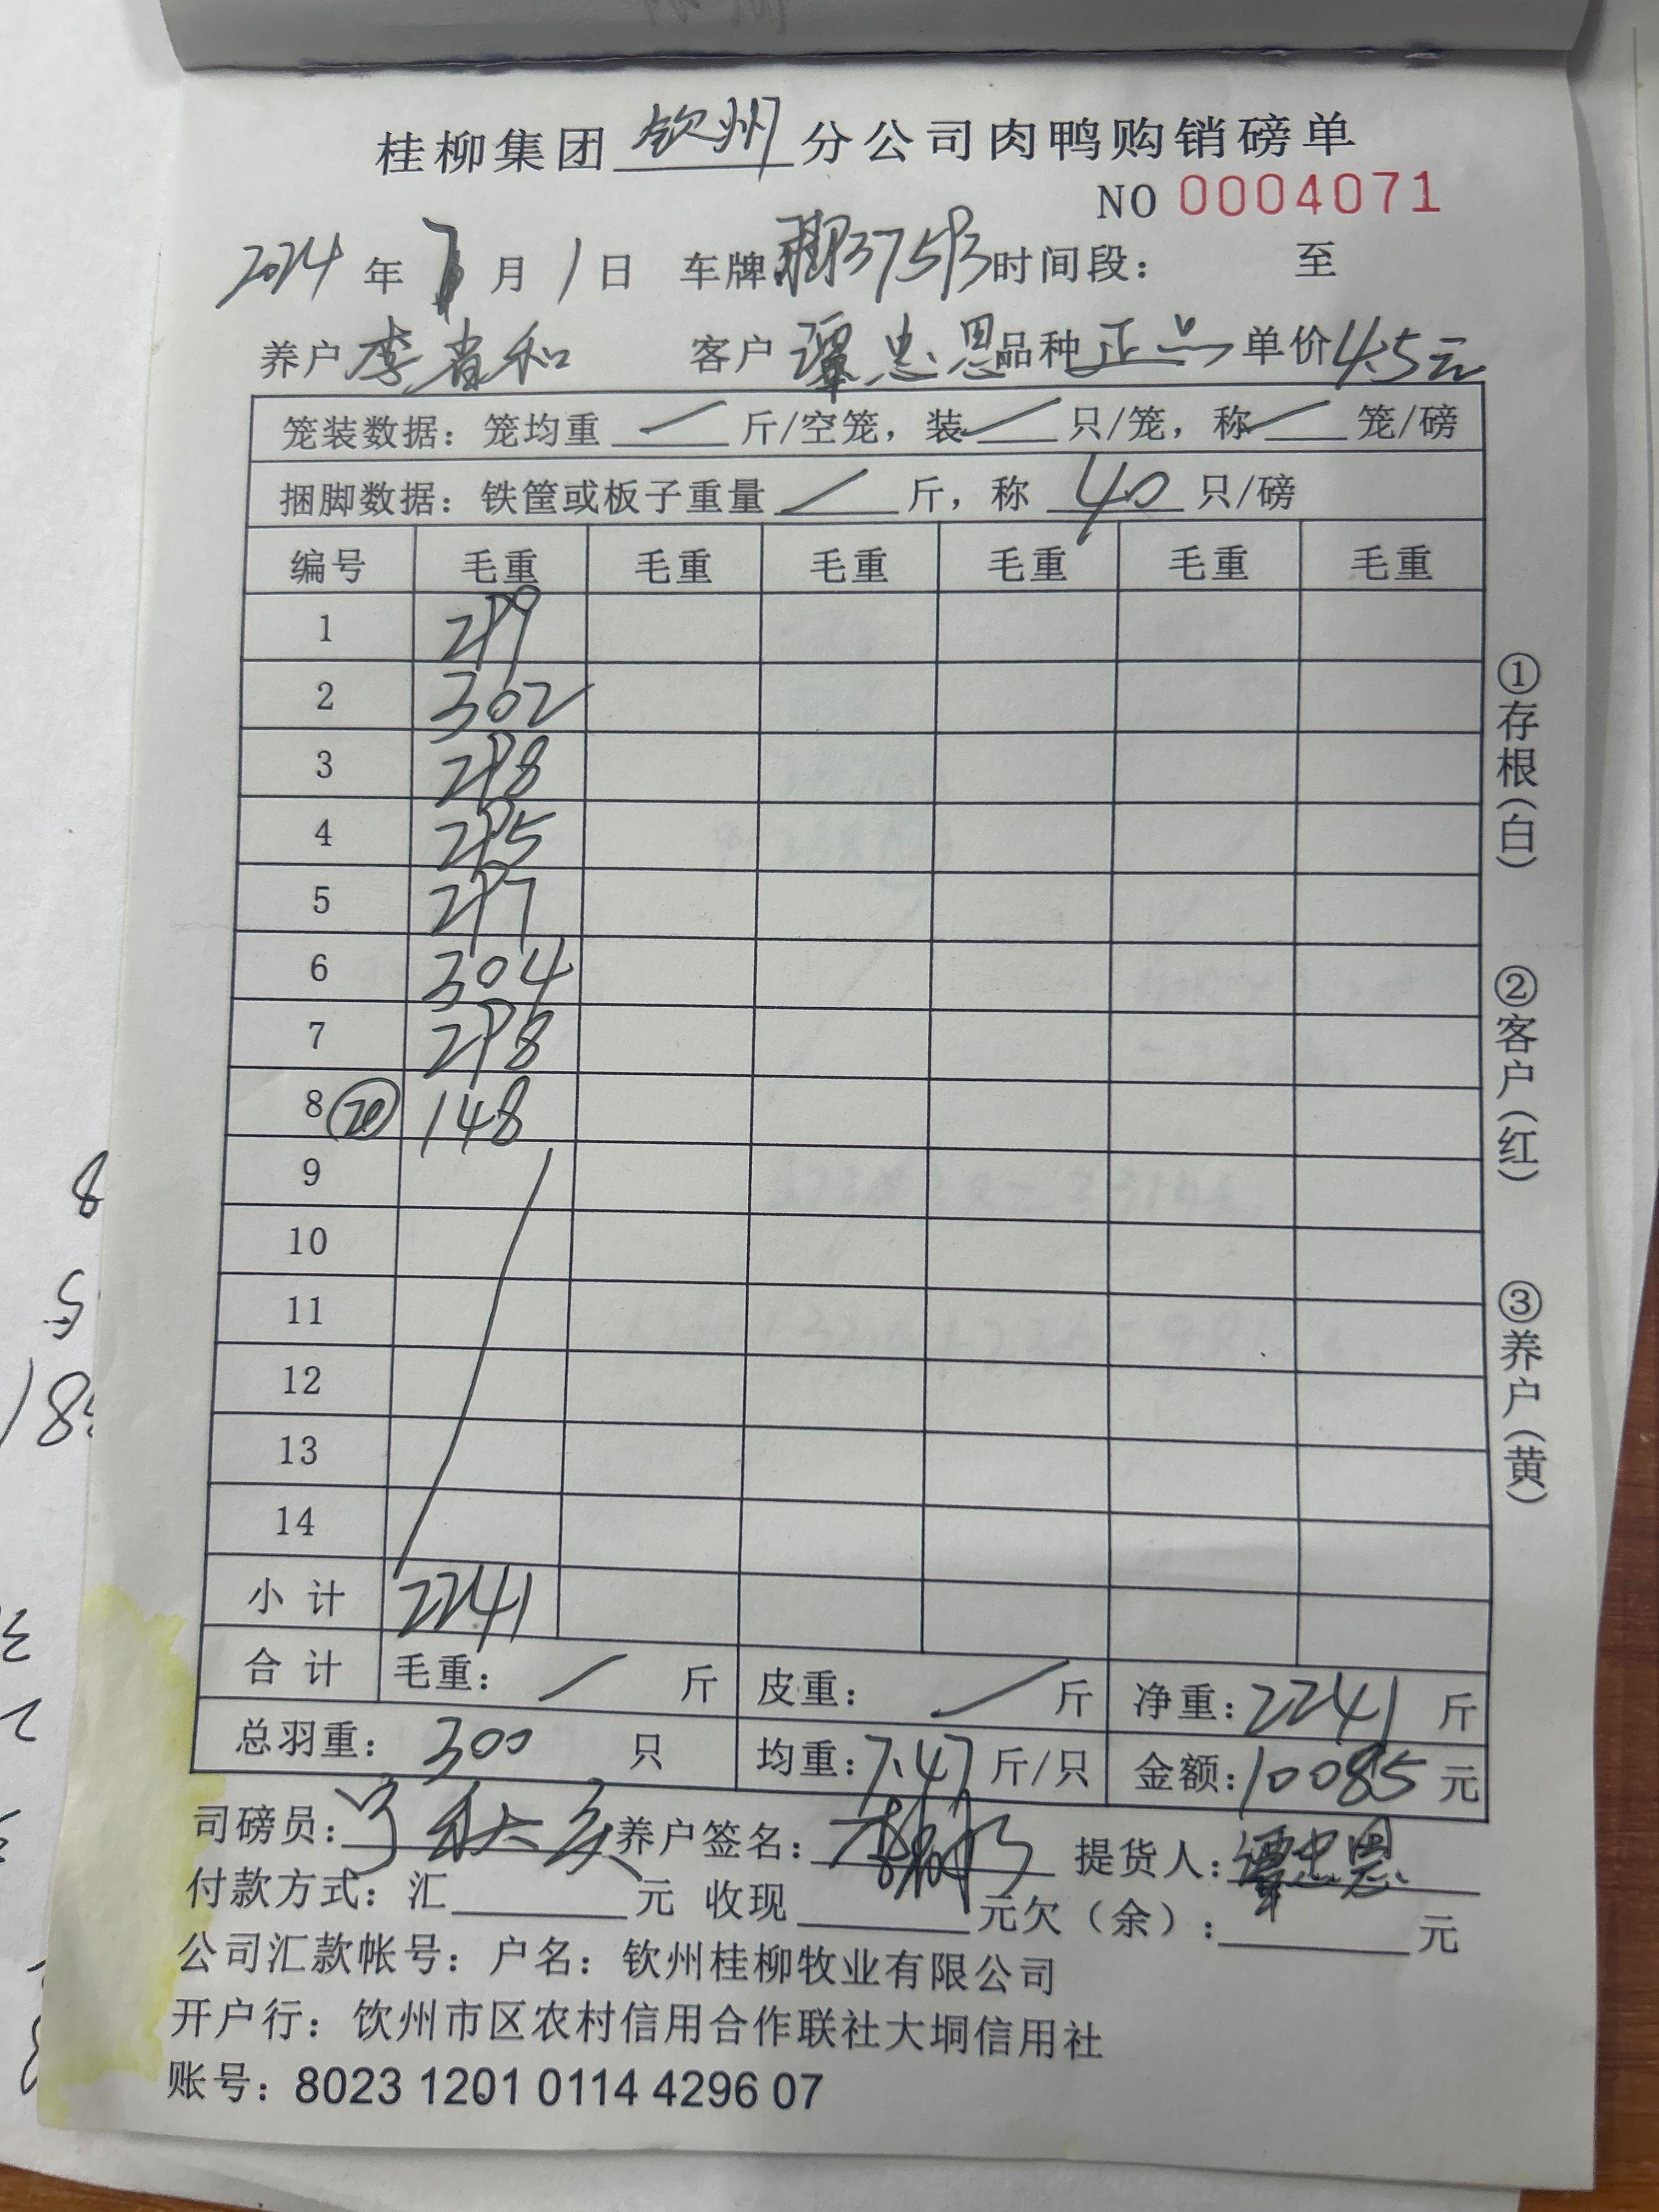 桂柳集团 钦州 分公司肉鸭购销磅单
NO 0004071
2024 年 7 月 1 日 车牌 37593 时间段： 至
养户 李首和 客户 谭忠恩 品种 正品 单价 4.5元
笼装数据：笼均重 / 斤/空笼，装 / 只/笼，称 / 笼/磅
捆脚数据：铁筐或板子重量 / 斤，称 40 只/磅
编号 毛重 毛重 毛重 毛重 毛重 毛重
1 299
2 302
3 298
4 295
5 297
6 304
7 298
8 ⑳ 148
9
10
11
12
13
14
小计 2241
合计 毛重： / 斤 皮重： / 斤 净重：2241 斤
总羽重： 300 只 均重：7.47 斤/只 金额：10085 元
司磅员： 养户签名： 提货人：谭忠恩
付款方式：汇 元 收现 元欠（余）： 元
公司汇款帐号：户名：钦州桂柳牧业有限公司
开户行：饮州市区农村信用合作联社大垌信用社
账号：8023 1201 0114 4296 07
①存根(白)
②客户(红)
③养户(黄)